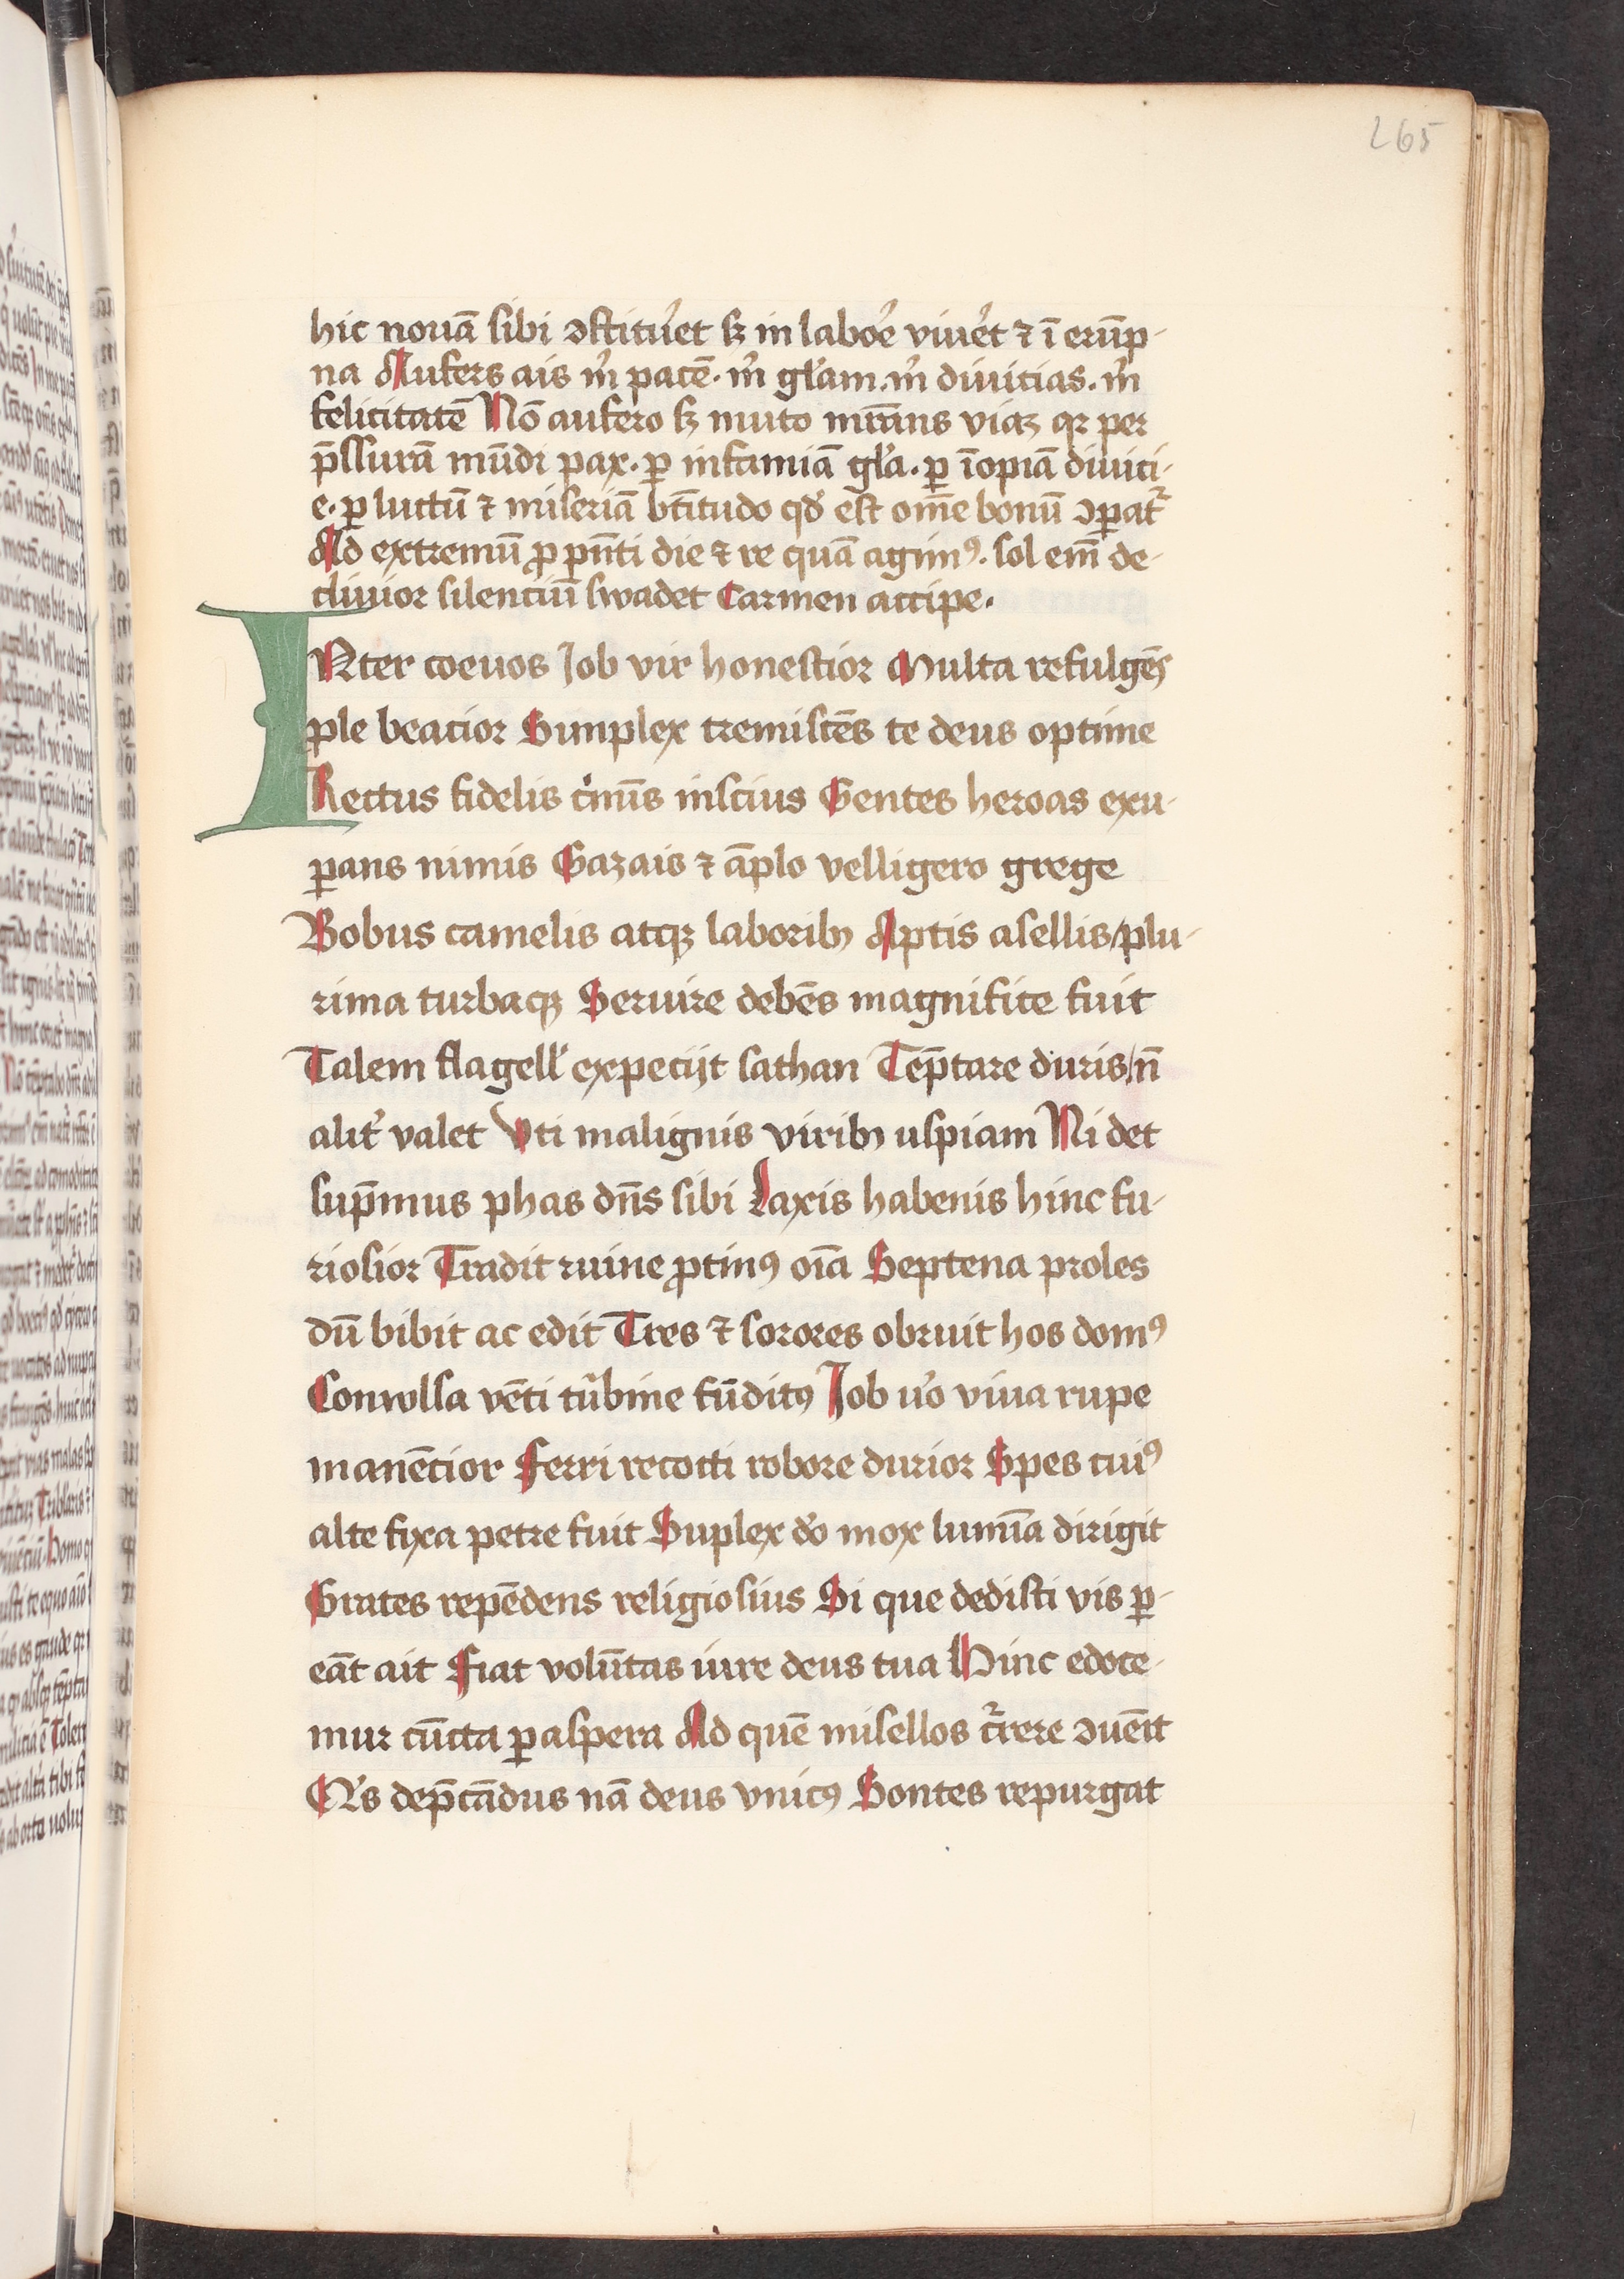 265
hic nouā sibi ↄstitu᾽et sꝫ in labo᾽e viu᾽et ⁊ ī erūp-
na Aufers ais m᾽ pacē· m᾽ gl᾽am· m᾽ diuicias· m᾽
felicitatē Nō aufero sꝫ muto mūtans viaꝫ qꝛ per
p̄ssurā mūdi pax· ꝑ infamiā gl᾽a· ꝑ īopiā diuici-
e· ꝑ luctū ⁊ miseriā bt̄itudo qd᾽ est om̄e bonū ↄꝑat᾽
Ad extremū ꝓ pn̄ti die ⁊ re quā agimꝰ· sol em̄ de-
cliuior silenciū swadet Carmen accipe·
INter coeuos Job vir honestior Multa refulgēs
ꝓle beacior Simplex tremiscēs te deus optime
Rectus fidelis c᾽mīs inscius Gentes heroas exu-
ꝑans nimis Gazais ⁊ āplo velligero grege
Bobus camelis atqꝫ laboribꝫ Aptis asellis/plu-
rima turbaqꝫ Seruire debēs magnifice fuit
Talem flagell᾽ expecijt sathan Tēp̄tare duris/n̄
alit᾽ valet Vti malignis viribꝫ uspiam Ni det
sup̄mus phas dn̄s sibi Laxis habenis hinc fu-
riosior Tradit ruine ꝓtinꝰ oīa Septena proles
dū bibit ac edit Tres ⁊ sorores obruit hos domꝰ
Conwlsa vēti tu᾽bine fūditꝰ Job u᾽o viua rupe
manēcior Ferri recocti robore durior Spes cuiꝰ
alte fixa petre fuit Suplex d᾽o mox lumīa dirigit
Grates repēdens religiosius Si que dedisti vis ꝑ-
eāt ait Fiat volūtas iure deus tua Hinc edoce-
mur cūcta ꝑ aspera Ad quē misellos c᾽rere ↄuēit
dep̄cādus nā deus vnicꝰ Sontes repurgat